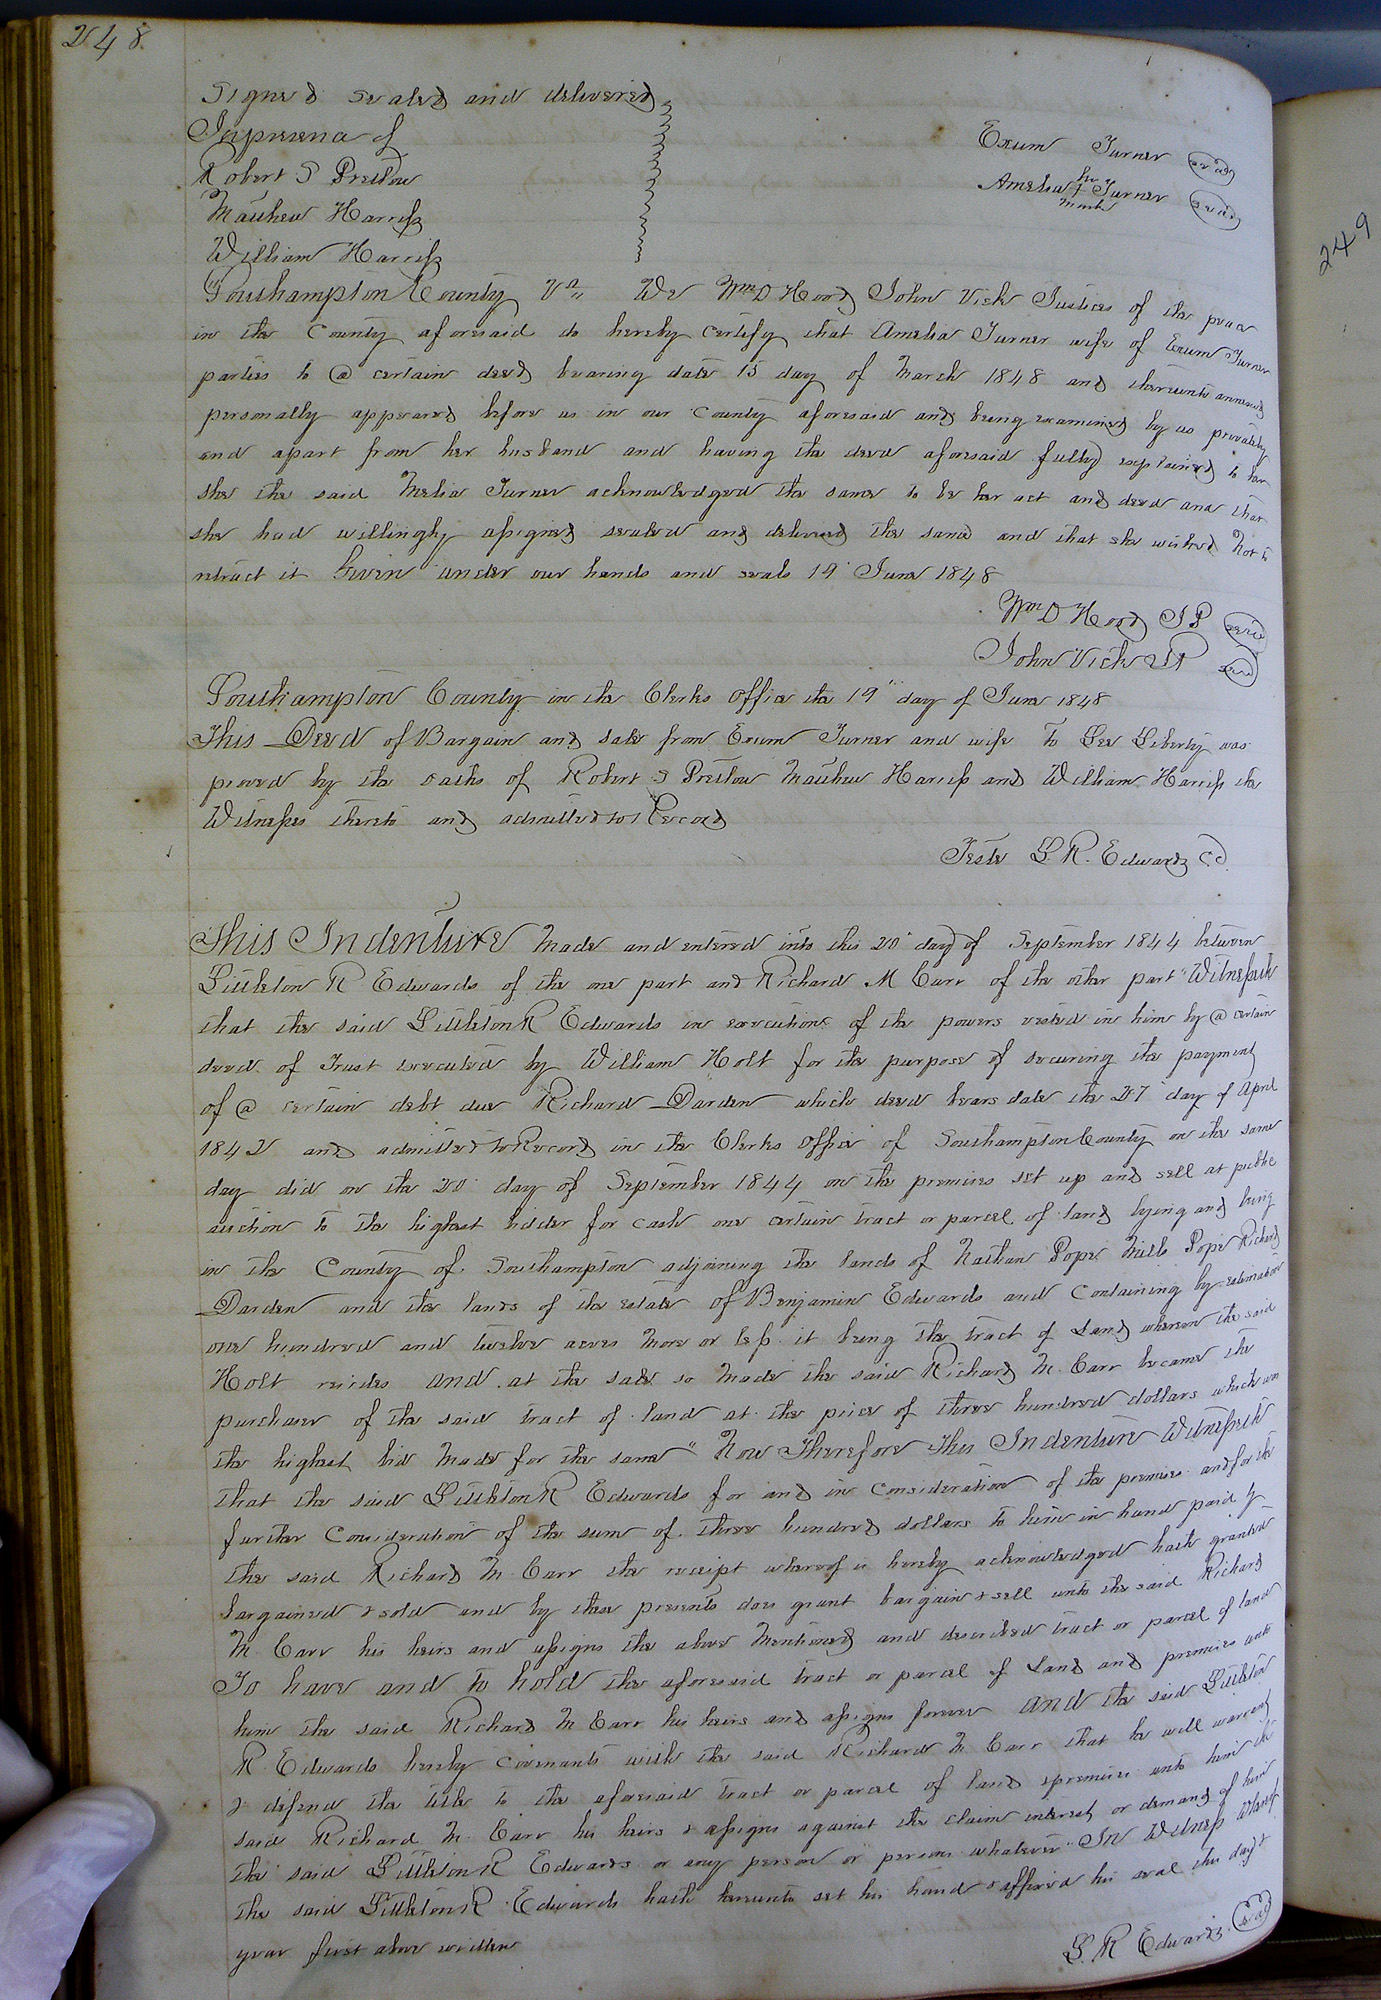 248
Signed sealed and delivered
In presence of
Robert S Pretlow
Mathew Harriss
William Harriss
Exum Turner seal
her
Amelia + Turner seal
mark
249
Southampton County Va We Wm D Hood John Vick Justices of the peace
in the County aforesaid do hereby certify that Amelia Turner wife of Exum Turner
parties to @ certain deed bearing date 15 day of March 1848 and thereunto annexed
personally appeared before us in our County aforesaid and being examined by us privately
and apart from her husband and having the deed aforesaid fully explained to her
she the said Melia Turner acknowledged the same to be her act and deed and that
she had willingly assigned sealed and delivered the same and that she wished not to
retract it Given under our hands and seals 19 June 1848
Wm D Hood JP seal
John Vick JP seal
Southampton County in the Clerks office the 19 day of June 1848
This Deed of Bargain and sale from Exum Turner and wife To Lee Liberty was
proved by the oaths of Robert S Pretlow Mathew Harriss and William Harriss the
Witnesses thereto and admitted to Record
Teste L R. Edwards CC
This Indenture Made and entered into this 20 day of September 1844 between
Littleton R Edwards of the one part and Richard M Carr of the other part "Witnesseth
that the said Littleton R Edwards in execution of the powers vested in him by @ certain
deed of Trust executed by William Holt for the purpose of securing the payment
of @ certain debt due Richard Darden which deed bears date the 27 day of April
1842 and admitted to Record in the Clerks office of Southampton County on the same
day did on the 20 day of September 1844 on the premises set up and sell at public
auction to the highest bidder for cash one certain tract or parcel of land lying and being
in the County of Southampton adjoining the lands of Nathan Pope Mills Pope Richard
Darden and the lands of the estate of Benjamin Edwards and Containing by estimation
one hundred and twelve acres More or less it being the tract of Land whereon the said
Holt resides and at the sale so made the said Richard M. Carr became the
purchaser of the said tract of land at the price of three hundred dollars which was
the highest bid Made for the same" Now Therefore This Indenture Witnesseth
that the said Littleton R Edwards for and in Consideration of the premises and for the
further Consideration of the sum of three hundred dollars to him in hand paid by
the said Richard M. Carr the receipt whereof is hereby acknowledged hath granted
bargained & sold and by these presents does grant bargain & sell unto the said Richard
M. Carr his heirs and assigns the above Mentioned and described tract or parcel of land
To have and to hold the aforesaid tract or parcel of Land and premises unto
him the said Richard M Carr his heirs and assigns forever And the said Littleton
R. Edwards hereby covenants with the said Richard M Carr that he will warrant
& defend the title to the aforesaid tract or parcel of land & premises unto him the
said Richard M. Carr his heirs & assigns against the claim interest or demand of him
the said Littleton R Edwards or any person or persons whatever" In Witness Whereof
the said Littleton R. Edwards hath hereunto set his hand & affixed his seal this day &
year first above written
L. R Edwards. seal